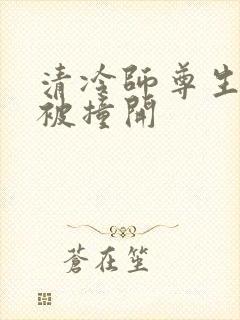 清冷師尊生
被撞開
蒼在笙